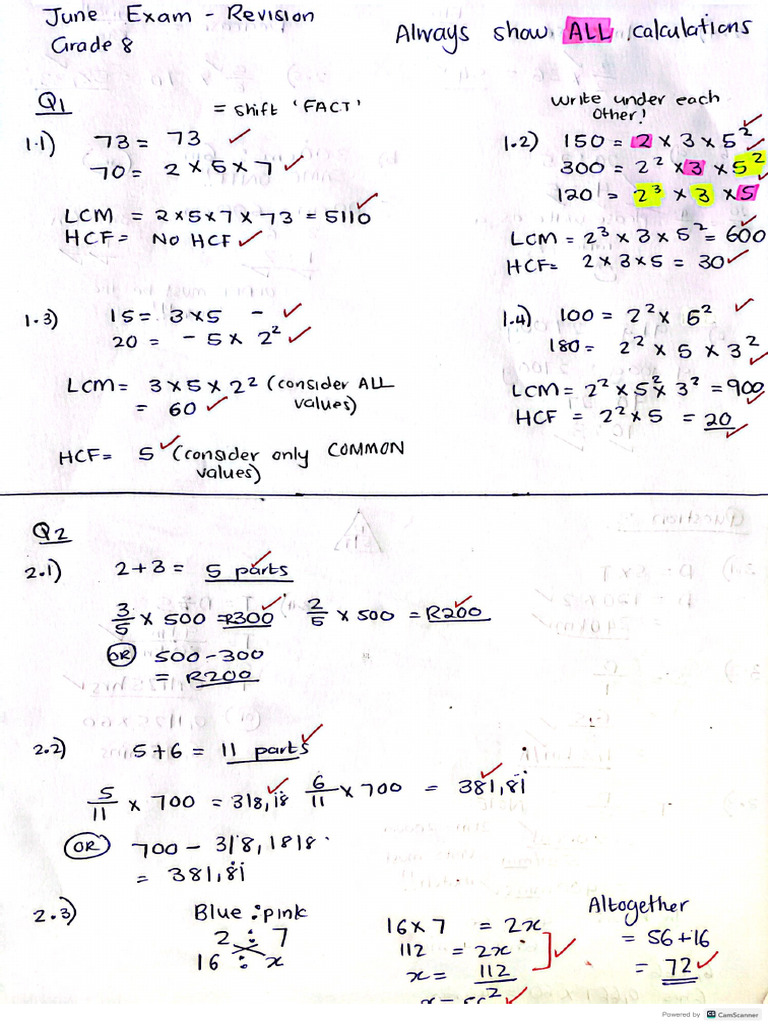 June Exam - Revision
Grade 8
Always show ALL calculations
Q1
= shift 'FACT'
1.1) 73 = 73 ✓
70 = 2 × 5 × 7 ✓
LCM = 2×5×7×73 = 5110 ✓
HCF = NO HCF ✓
write under each
other!
1.2) 150 = 2 × 3 × 5² ✓
300 = 2² × 3 × 5² ✓
120 = 2³ × 3 × 5 ✓
LCM = 2³ × 3 × 5² = 600 ✓
HCF = 2 × 3 × 5 = 30 ✓
1.3) 15 = 3×5 - ✓
20 = - 5 × 2² ✓
LCM = 3 × 5 × 2² (consider ALL
= 60 ✓ values)
HCF = 5 ✓ (consider only COMMON
values)
1.4) 100 = 2² × 5² ✓
180 = 2² × 5 × 3² ✓
LCM = 2² × 5² × 3² = 900 ✓
HCF = 2² × 5 = 20 ✓
Q2
2.1) 2+3 = 5 parts ✓
3/5 × 500 = R300 ✓ 2/5 × 500 = R200 ✓
OR 500 - 300
= R200
2.2) 5+6 = 11 parts ✓
5/11 × 700 = 318,1̇8̇ ✓ 6/11 × 700 = 381,8̇1̇ ✓
OR 700 - 318,1818
= 381,8̇1̇
2.3) Blue : pink
2 : 7
16 : x
16 × 7 = 2x
112 = 2x
x = 112/2 ✓
x = 56 ✓
Altogether
= 56 + 16
= 72 ✓
Powered by CS CamScanner